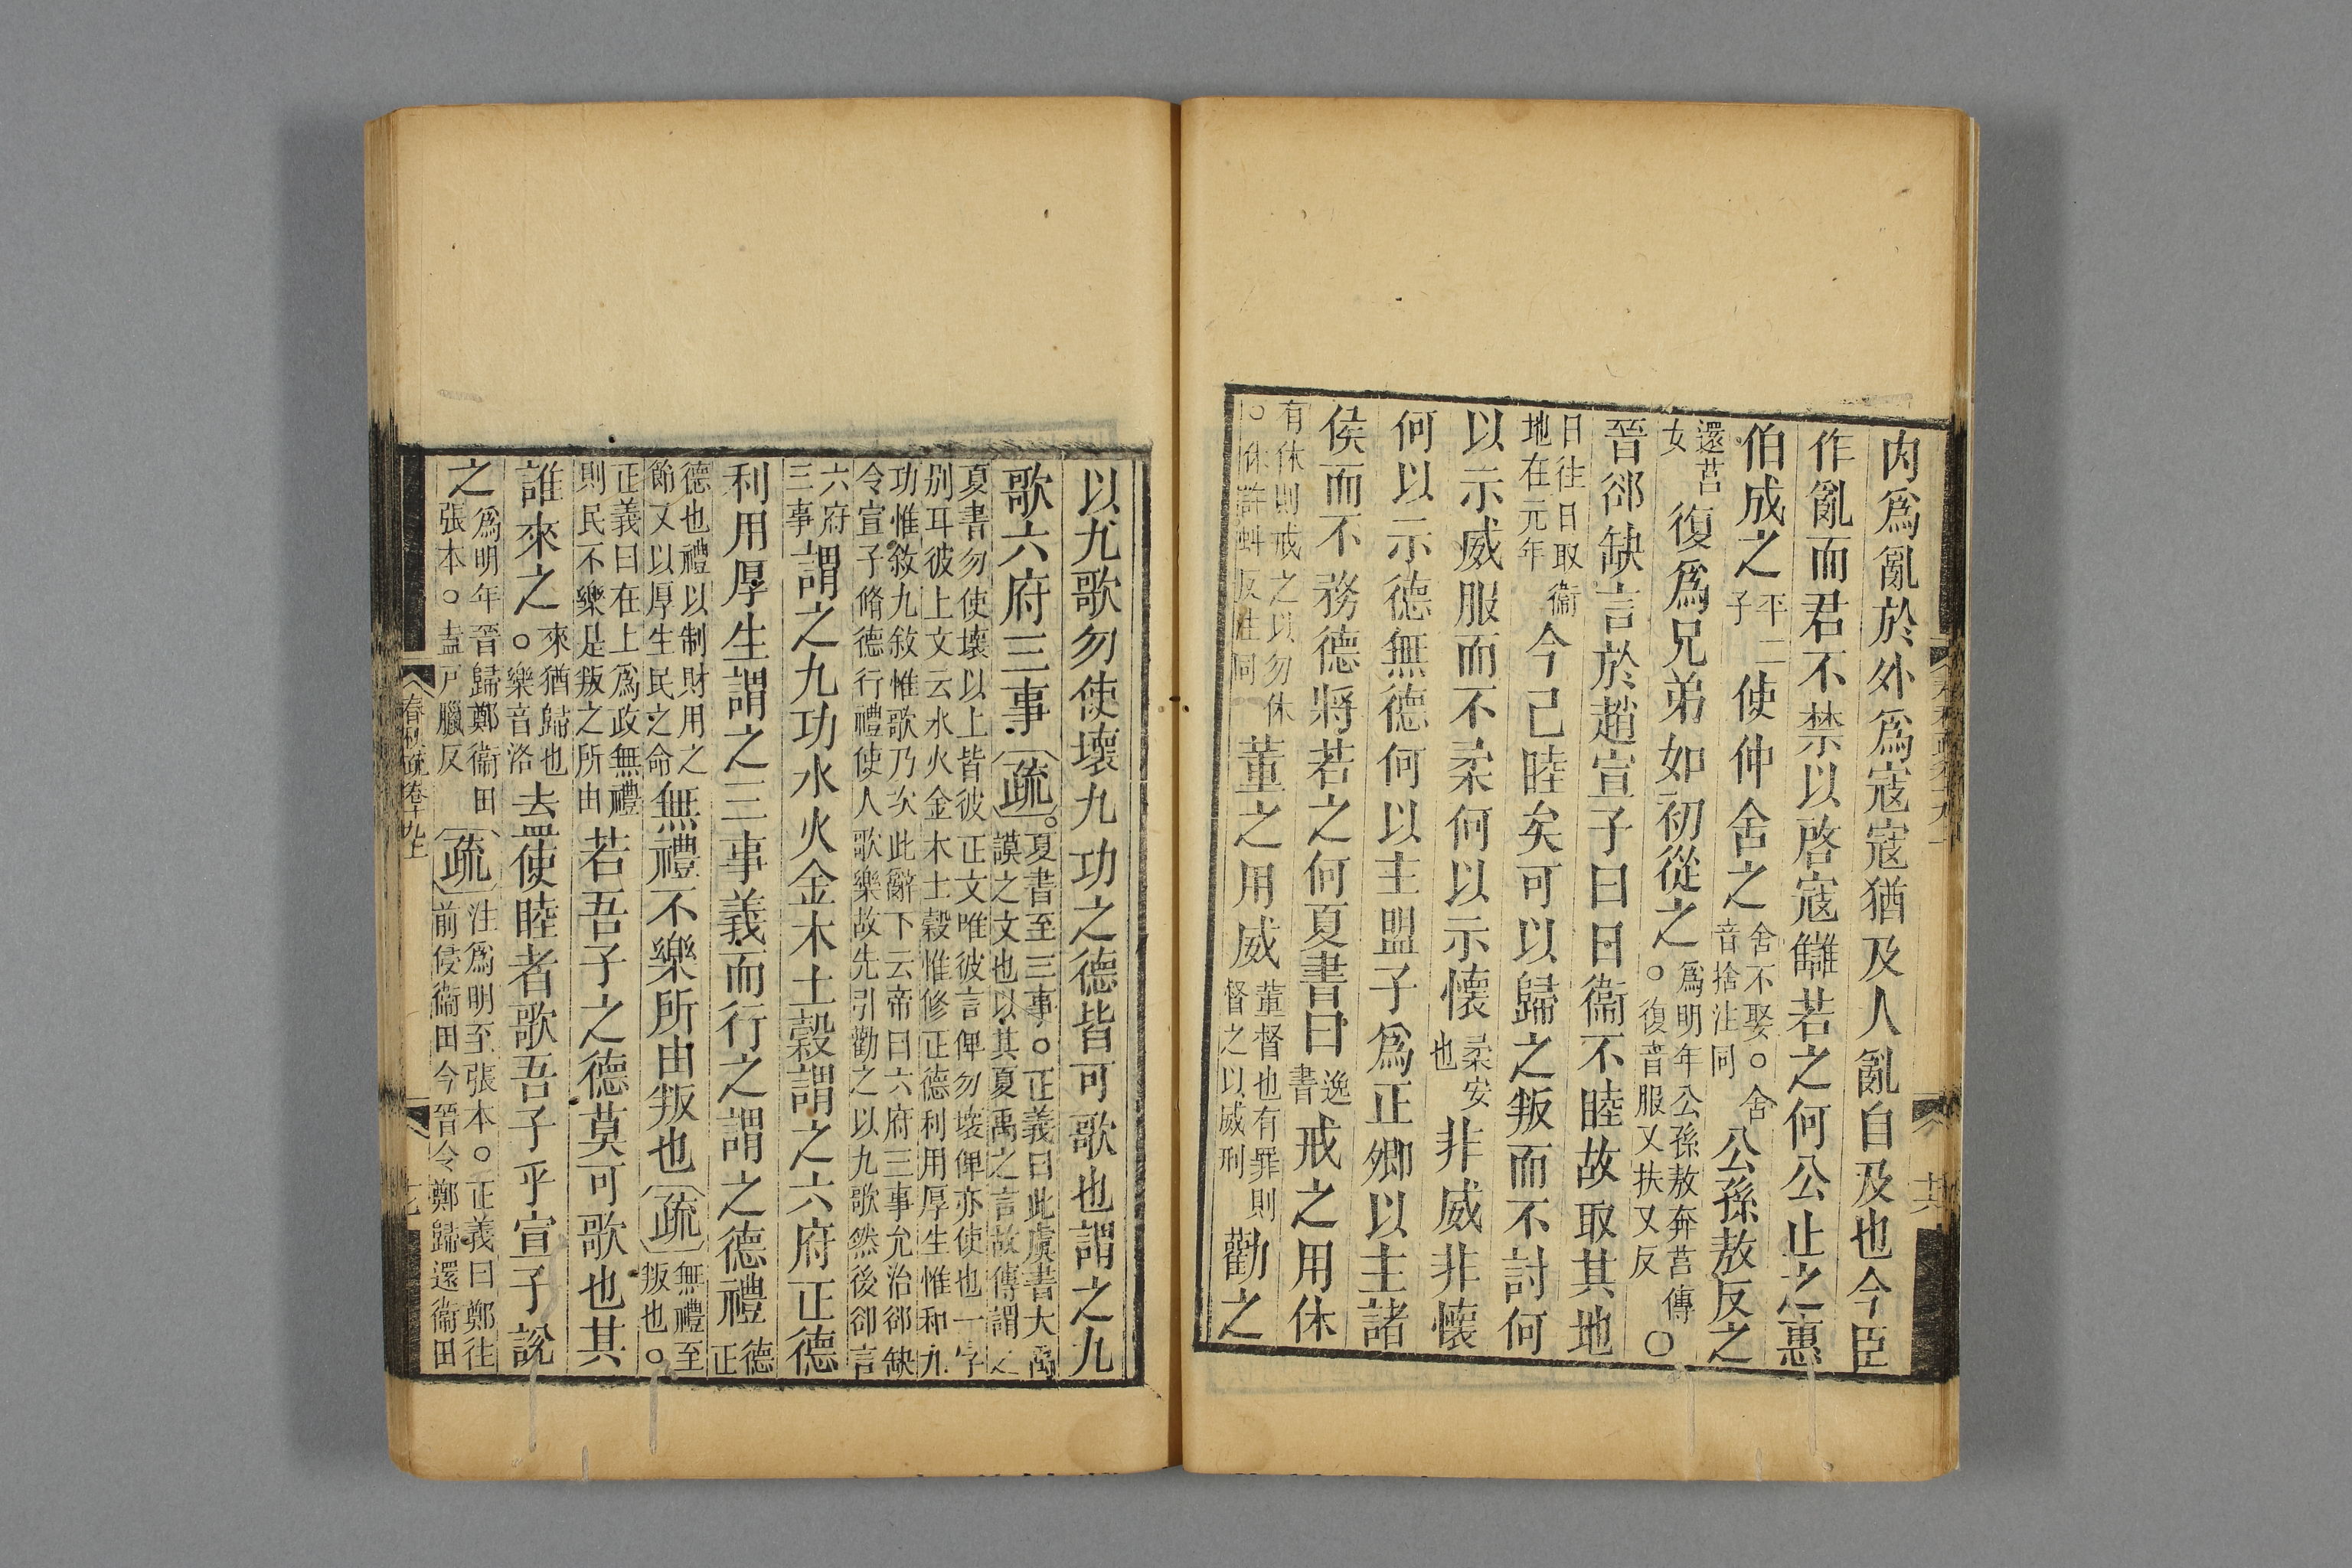 內爲亂於外爲寇寇猶及人亂自及也今臣
作亂而君不禁以啓寇讎若之何公止之惠
伯成之平二子使仲舍之舍不娶○舍音捨注同公孫敖反之
還莒女復爲兄弟如初從之爲明年公孫敖奔莒傳○復音服又扶又反○
晉郤缺言於趙宣子曰日衞不睦故取其地
日往日取衞地在元年今已睦矣可以歸之叛而不討何
以示威服而不柔何以示懷柔安也非威非懷
何以示德無德何以主盟子爲正卿以主諸
侯而不務德將若之何夏書曰逸書戒之用休
有休則戒之以勿休○休許虯反注同董之用威董督也有罪則督之以威刑勸之
以九歌勿使壞九功之德皆可歌也謂之九
歌六府三事疏○夏書至三事○正義曰此虞書大禹謨之文也以其夏禹之言故傳謂之
夏書勿使壞以上皆彼正文唯彼言俾勿壞俾亦使也一字
別耳彼上文云水火金木土穀惟修正德利用厚生惟和九
功惟敘九敘惟歌乃次此辭下云帝曰六府三事允治郤缺
令宣子脩德行禮使人歌樂故先引勸之以九歌然後卻言
六府三事謂之九功水火金木土穀謂之六府正德
利用厚生謂之三事義而行之謂之德禮德正
德也禮以制財用之節又以厚生民之命無禮不樂所由叛也疏無禮至叛也○
正義曰在上爲政無禮則民不樂是叛之所由若吾子之德莫可歌也其
誰來之來猶歸也○樂音洛盍使睦者歌吾子乎宣子說
之爲明年晉歸鄭衞田張本○盍戶臘反疏注爲明至張本○正義曰鄭往前侵衞田今晉令鄭歸還衞田
春秋疏卷十九上